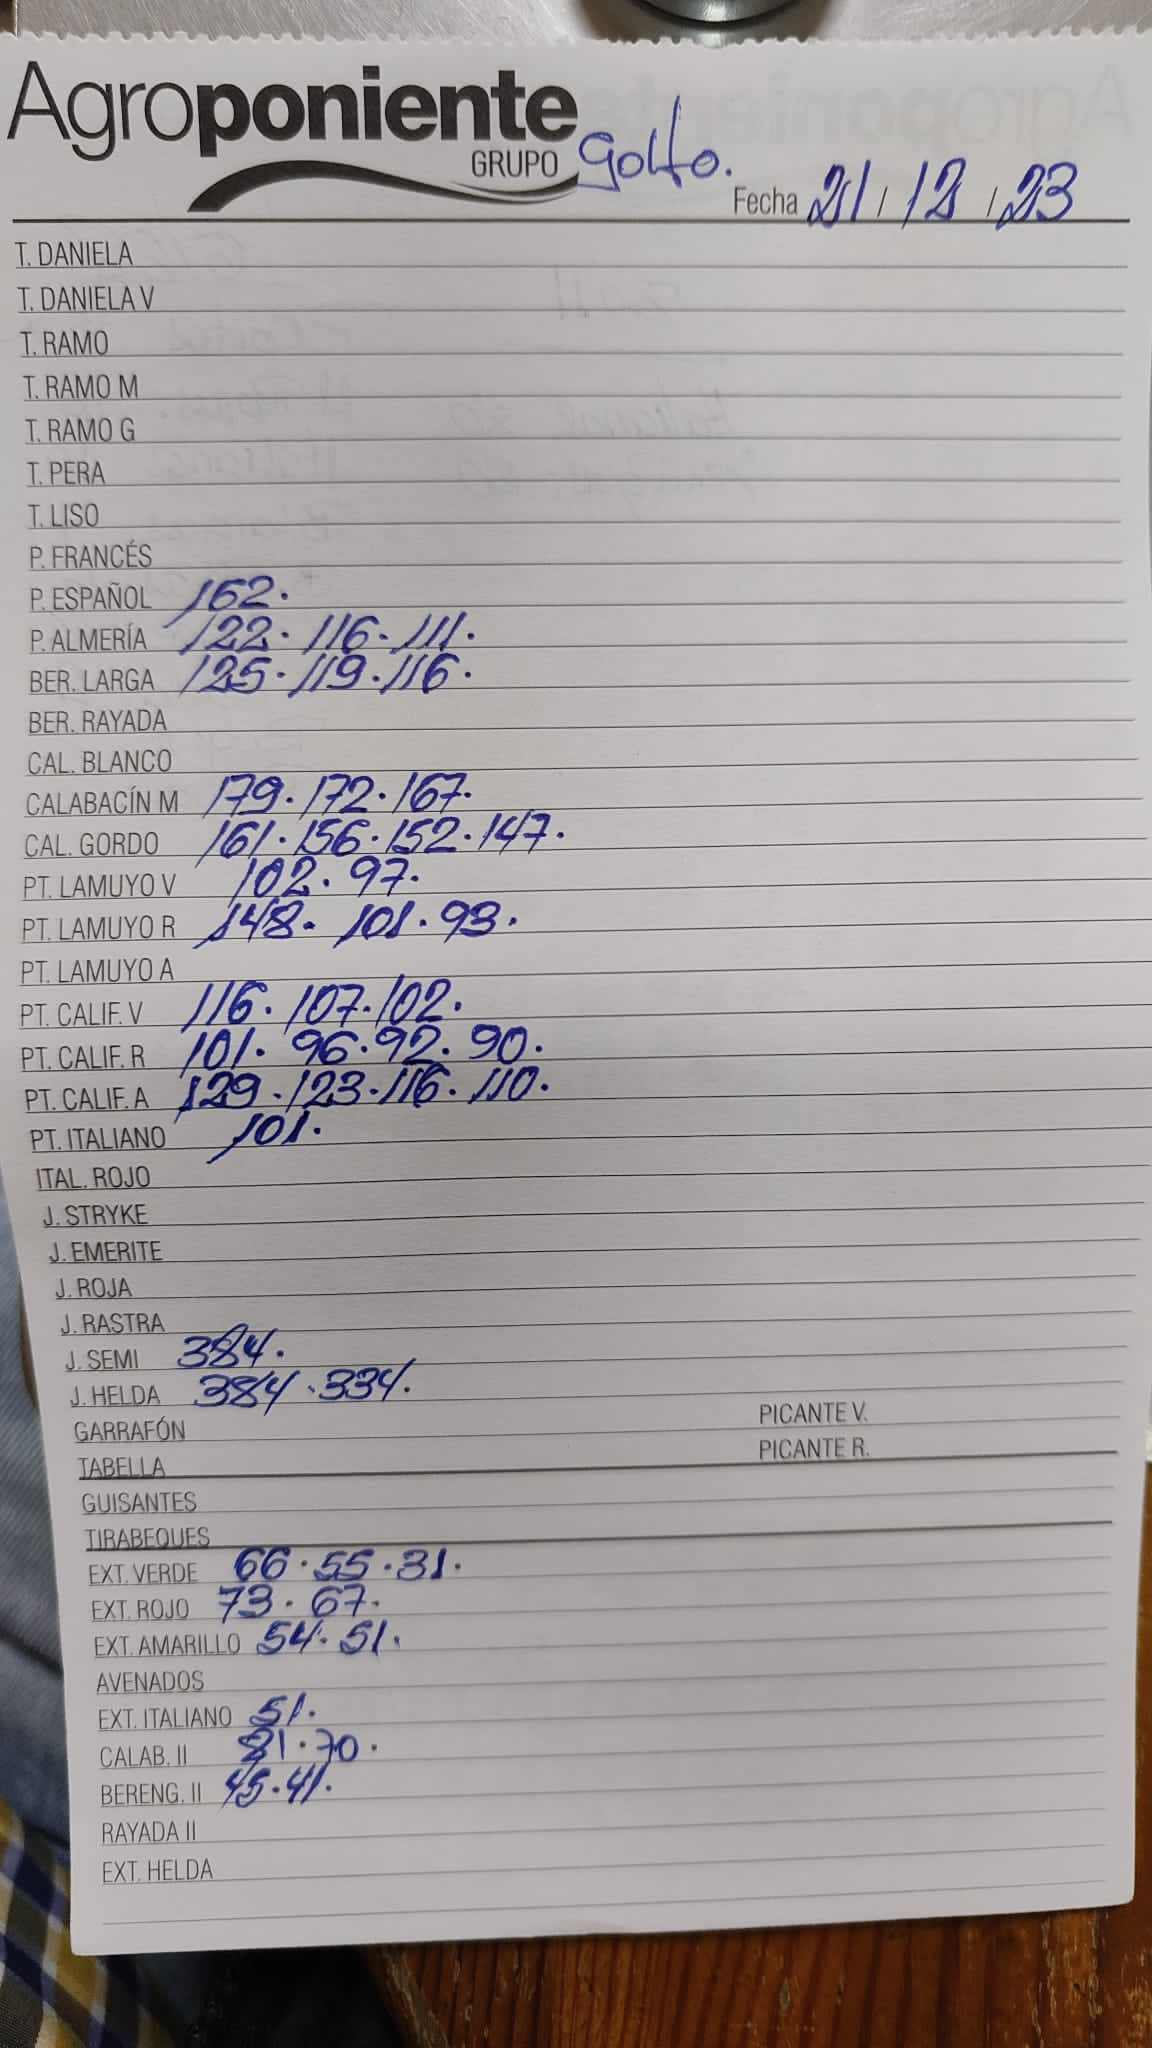 Agroponiente
GRUPO Golfo.
Fecha 21/12/23
T. DANIELA
T. DANIELA V
T. RAMO
T. RAMO M
T. RAMO G
T. PERA
T. LISO
P. FRANCÉS
P. ESPAÑOL 162.
P. ALMERÍA 122. 116. 111.
BER. LARGA 125. 119. 116.
BER. RAYADA
CAL. BLANCO
CALABACÍN M 179. 172. 167.
CAL. GORDO 161. 156. 152. 147.
PT. LAMUYO V 102. 97.
PT. LAMUYO R 148. 101. 93.
PT. LAMUYO A
PT. CALIF. V 116. 107. 102.
PT. CALIF. R 101. 96. 92. 90.
PT. CALIF. A 129. 123. 116. 110.
PT. ITALIANO 101.
ITAL. ROJO
J. STRYKE
J. EMERITE
J. ROJA
J. RASTRA
J. SEMI 384.
J. HELDA 384. 334.
GARRAFÓN PICANTE V.
TABELLA PICANTE R.
GUISANTES
TIRABEQUES
EXT. VERDE 66. 55. 31.
EXT. ROJO 73. 67.
EXT. AMARILLO 54. 51.
AVENADOS
EXT. ITALIANO 51.
CALAB. II 81. 70.
BERENG. II 45. 41.
RAYADA II
EXT. HELDA